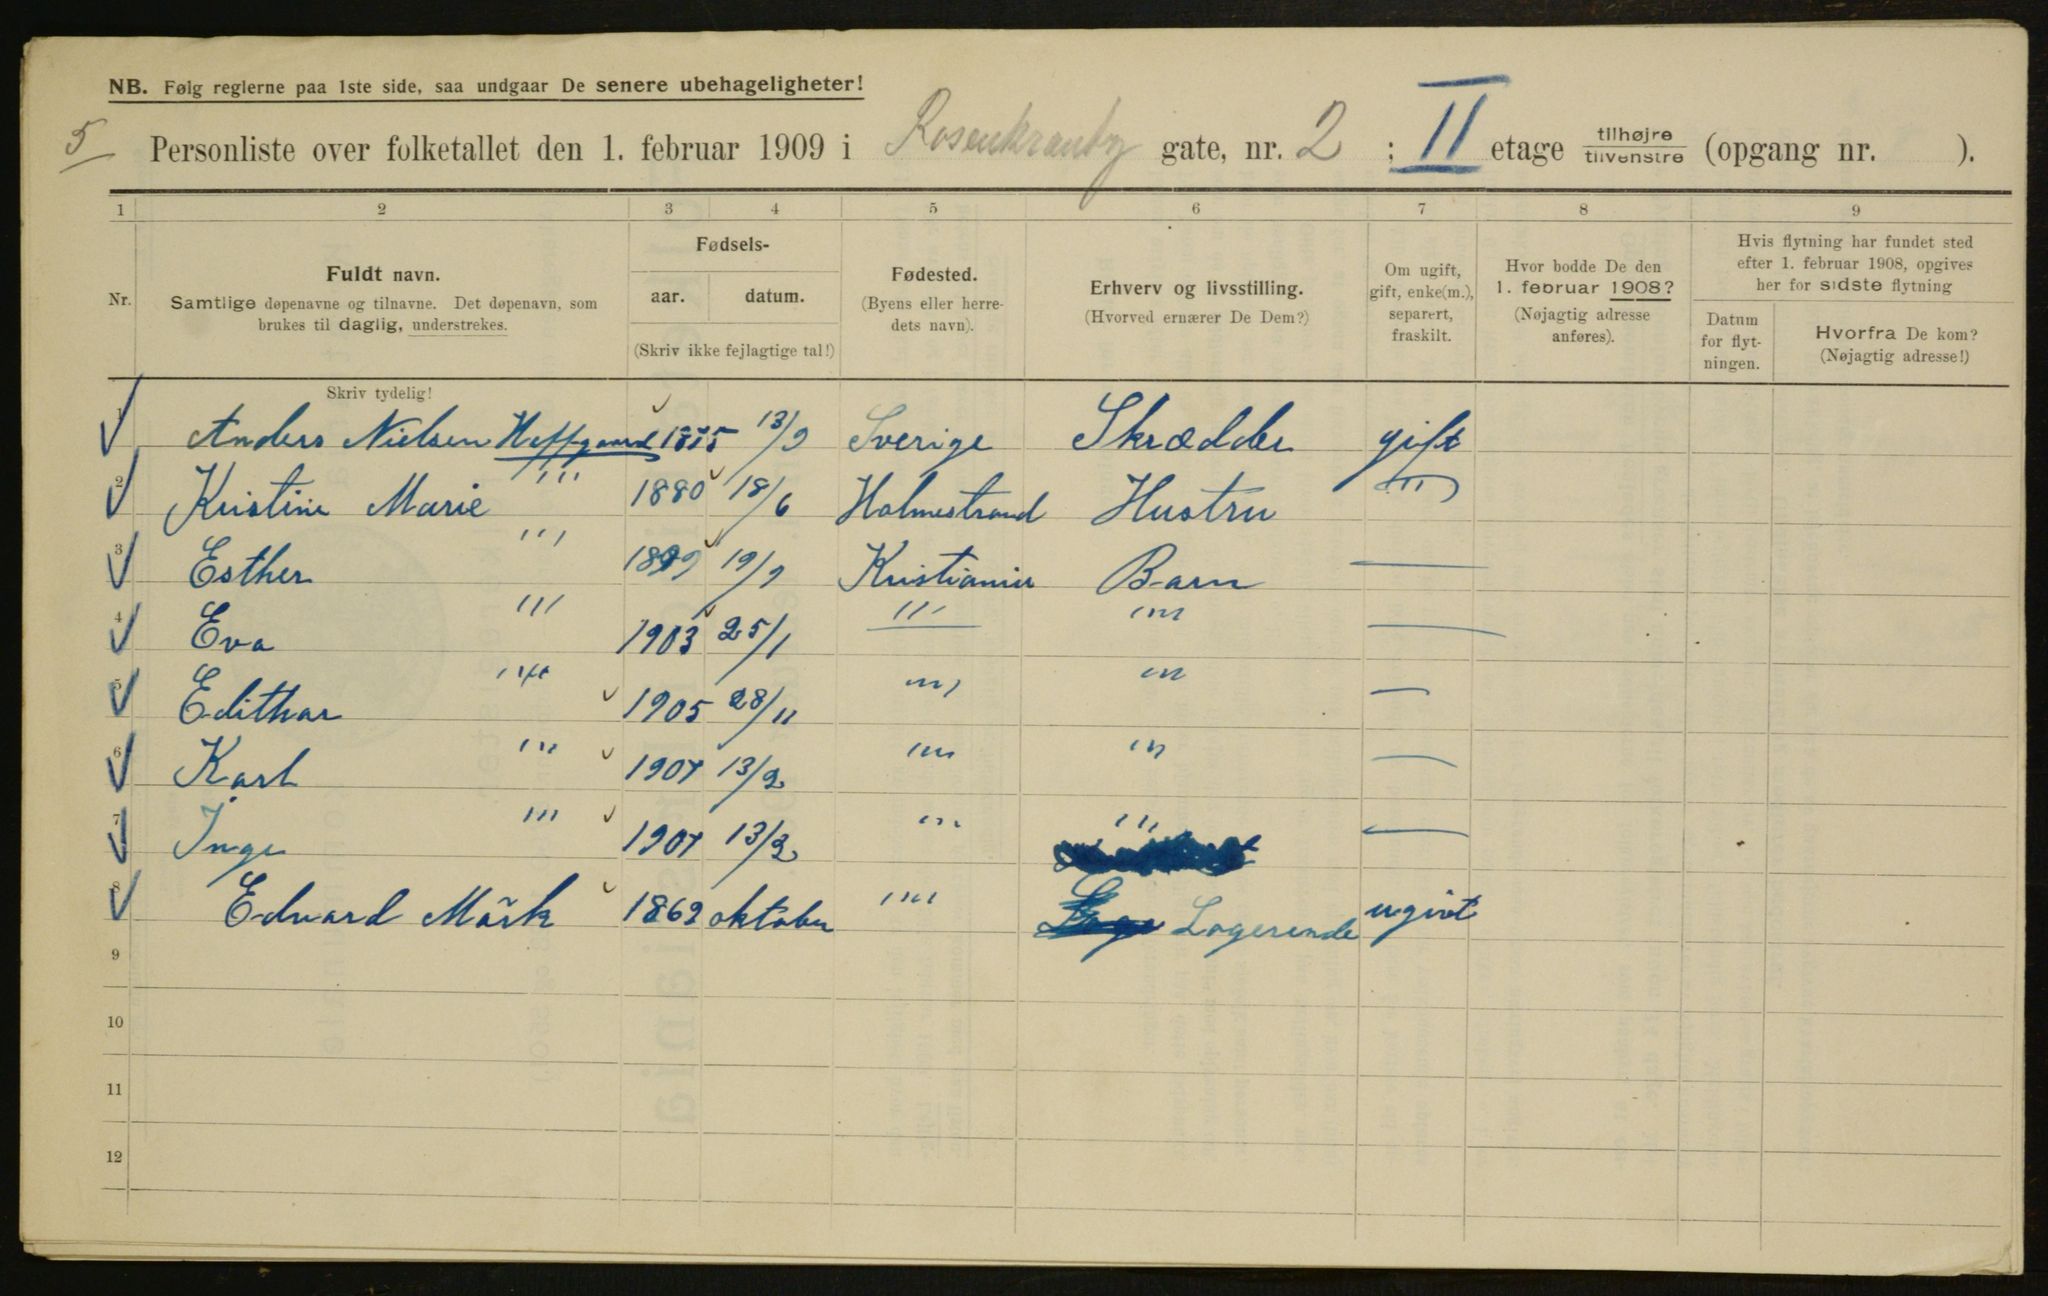 NB. Følg reglerne paa 1ste side, saa undgaar De senere ubehageligheter!
5 Personliste over folketallet den 1. februar 1909 i gate, nr. 2 ; II etage tilhøjre tilvenstre (opgang nr. ).
1 2 3 4 5 6 7 8 9
Nr.
Fuldt navn.
Samtlige døpenavne og tilnavne. Det døpenavn, som
brukes til daglig, understrekes.
Fødsels-
aar. datum.
(Skriv ikke fejlagtige tal!)
Fødested.
(Byens eller herre-
dets navn).
Erhverv og livsstilling.
(Hvorved ernærer De Dem?)
Om ugift,
gift, enke(m.),
separert,
fraskilt.
Hvor bodde De den
1. februar 1908?
(Nøjagtig adresse
anføres).
Hvis flytning har fundet sted
efter 1. februar 1908, opgives
her for sidste flytning
Datum
for flyt-
ningen.
Hvorfra De kom?
(Nøjagtig adresse!)
Skriv tydelig!
1 Anders Nielsen 1875 13/9 Sverige Skrædder gift
2 Kristine Marie ''' 1880 18/6 Holmestrand Hustru '''
3 Esther ''' 1899 19/9 Kristiania Barn —
4 Eva ''' 1903 25/1 ''' ''' —
5 Edithar ''' 1905 28/11 ''' ''' —
6 Karl ''' 1907 13/2 ''' ''' —
7 Inge ''' 1907 13/2 ''' ''' —
8 Edvard Mörk 1862 oktober ''' Logerende ugivt
9
10
11
12